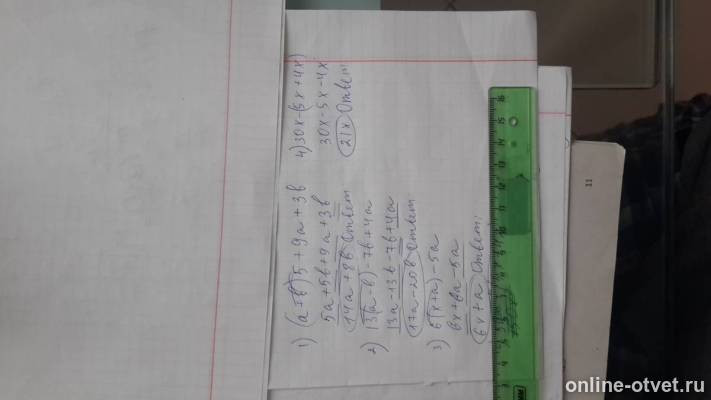 1) (a+b)5+9a+3b
5a+5b+9a+3b
14a+8b Ответ
2) 13(a-b)-7b+4a
13a-13b-7b+4a
17a-20b Ответ
3) 6(x+a)-5a
6x+6a-5a
6x+a Ответ:
4) 30x-(5x+4x)
30x-5x-4x
21x Ответ
11
online-otvet.ru